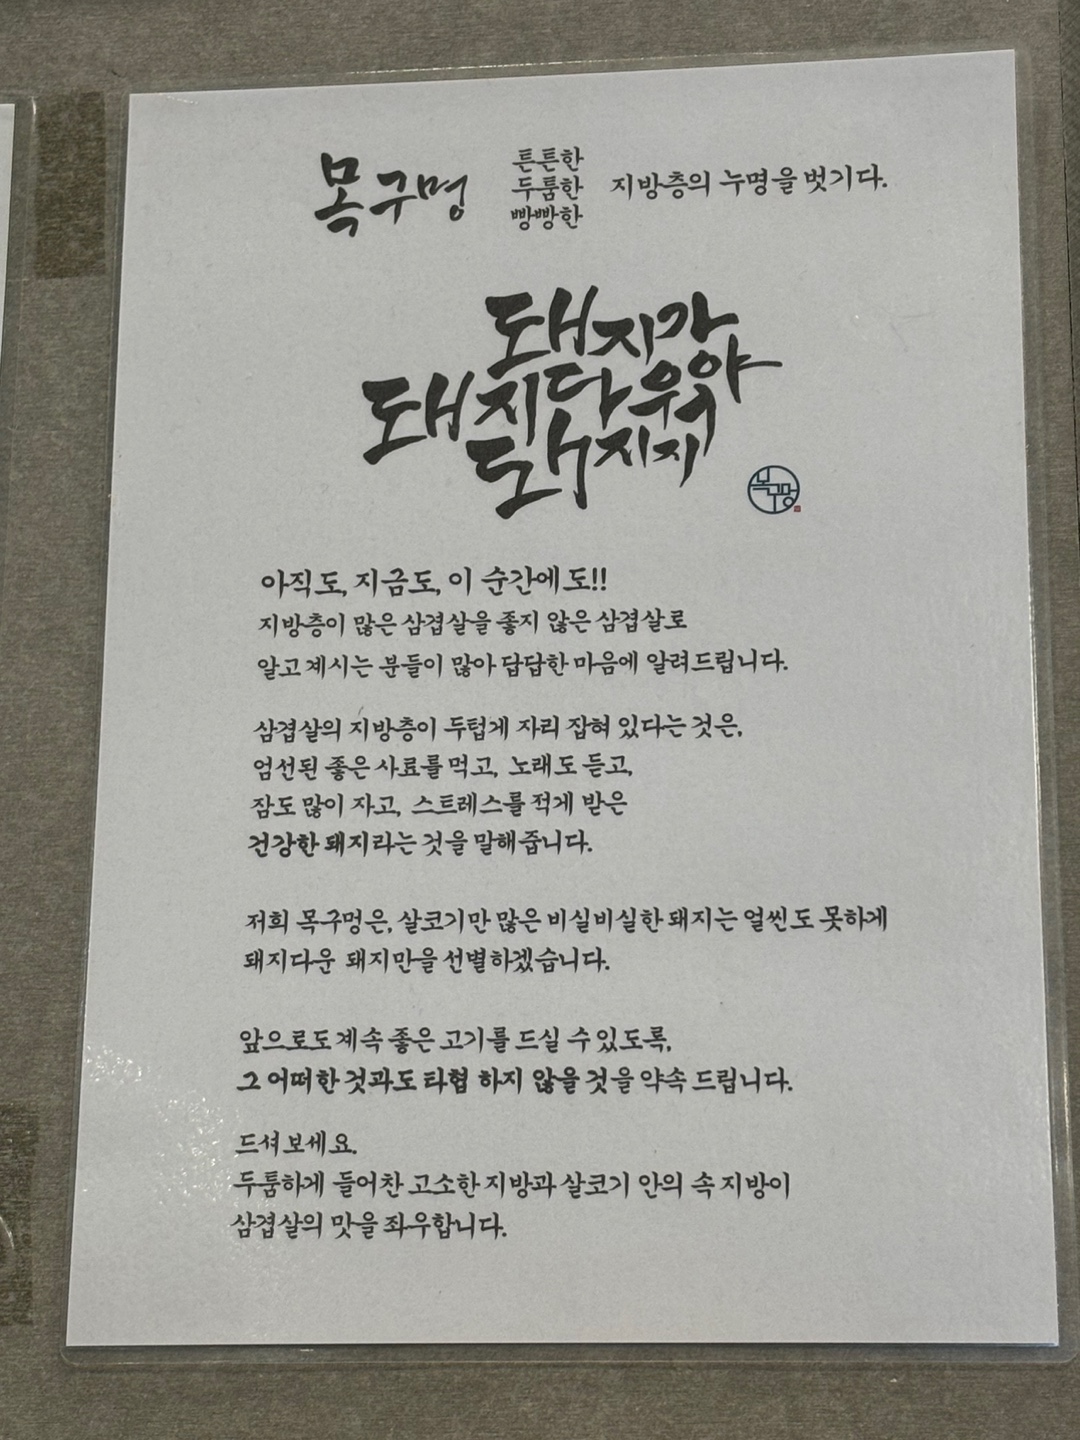 목구멍 튼튼한 두툼한 빵빵한 지방층의 누명을 벗기다.
돼지가
돼지다워야
돼지지
목구멍
아직도, 지금도, 이 순간에도!!
지방층이 많은 삼겹살을 좋지 않은 삼겹살로
알고 계시는 분들이 많아 답답한 마음에 알려드립니다.
삼겹살의 지방층이 두텁게 자리 잡혀 있다는 것은,
엄선된 좋은 사료를 먹고, 노래도 듣고,
잠도 많이 자고, 스트레스를 적게 받은
건강한 돼지라는 것을 말해줍니다.
저희 목구멍은, 살코기만 많은 비실비실한 돼지는 얼씬도 못하게
돼지다운 돼지만을 선별하겠습니다.
앞으로도 계속 좋은 고기를 드실 수 있도록,
그 어떠한 것과도 타협 하지 않을 것을 약속 드립니다.
드셔보세요.
두툼하게 들어찬 고소한 지방과 살코기 안의 속 지방이
삼겹살의 맛을 좌우합니다.